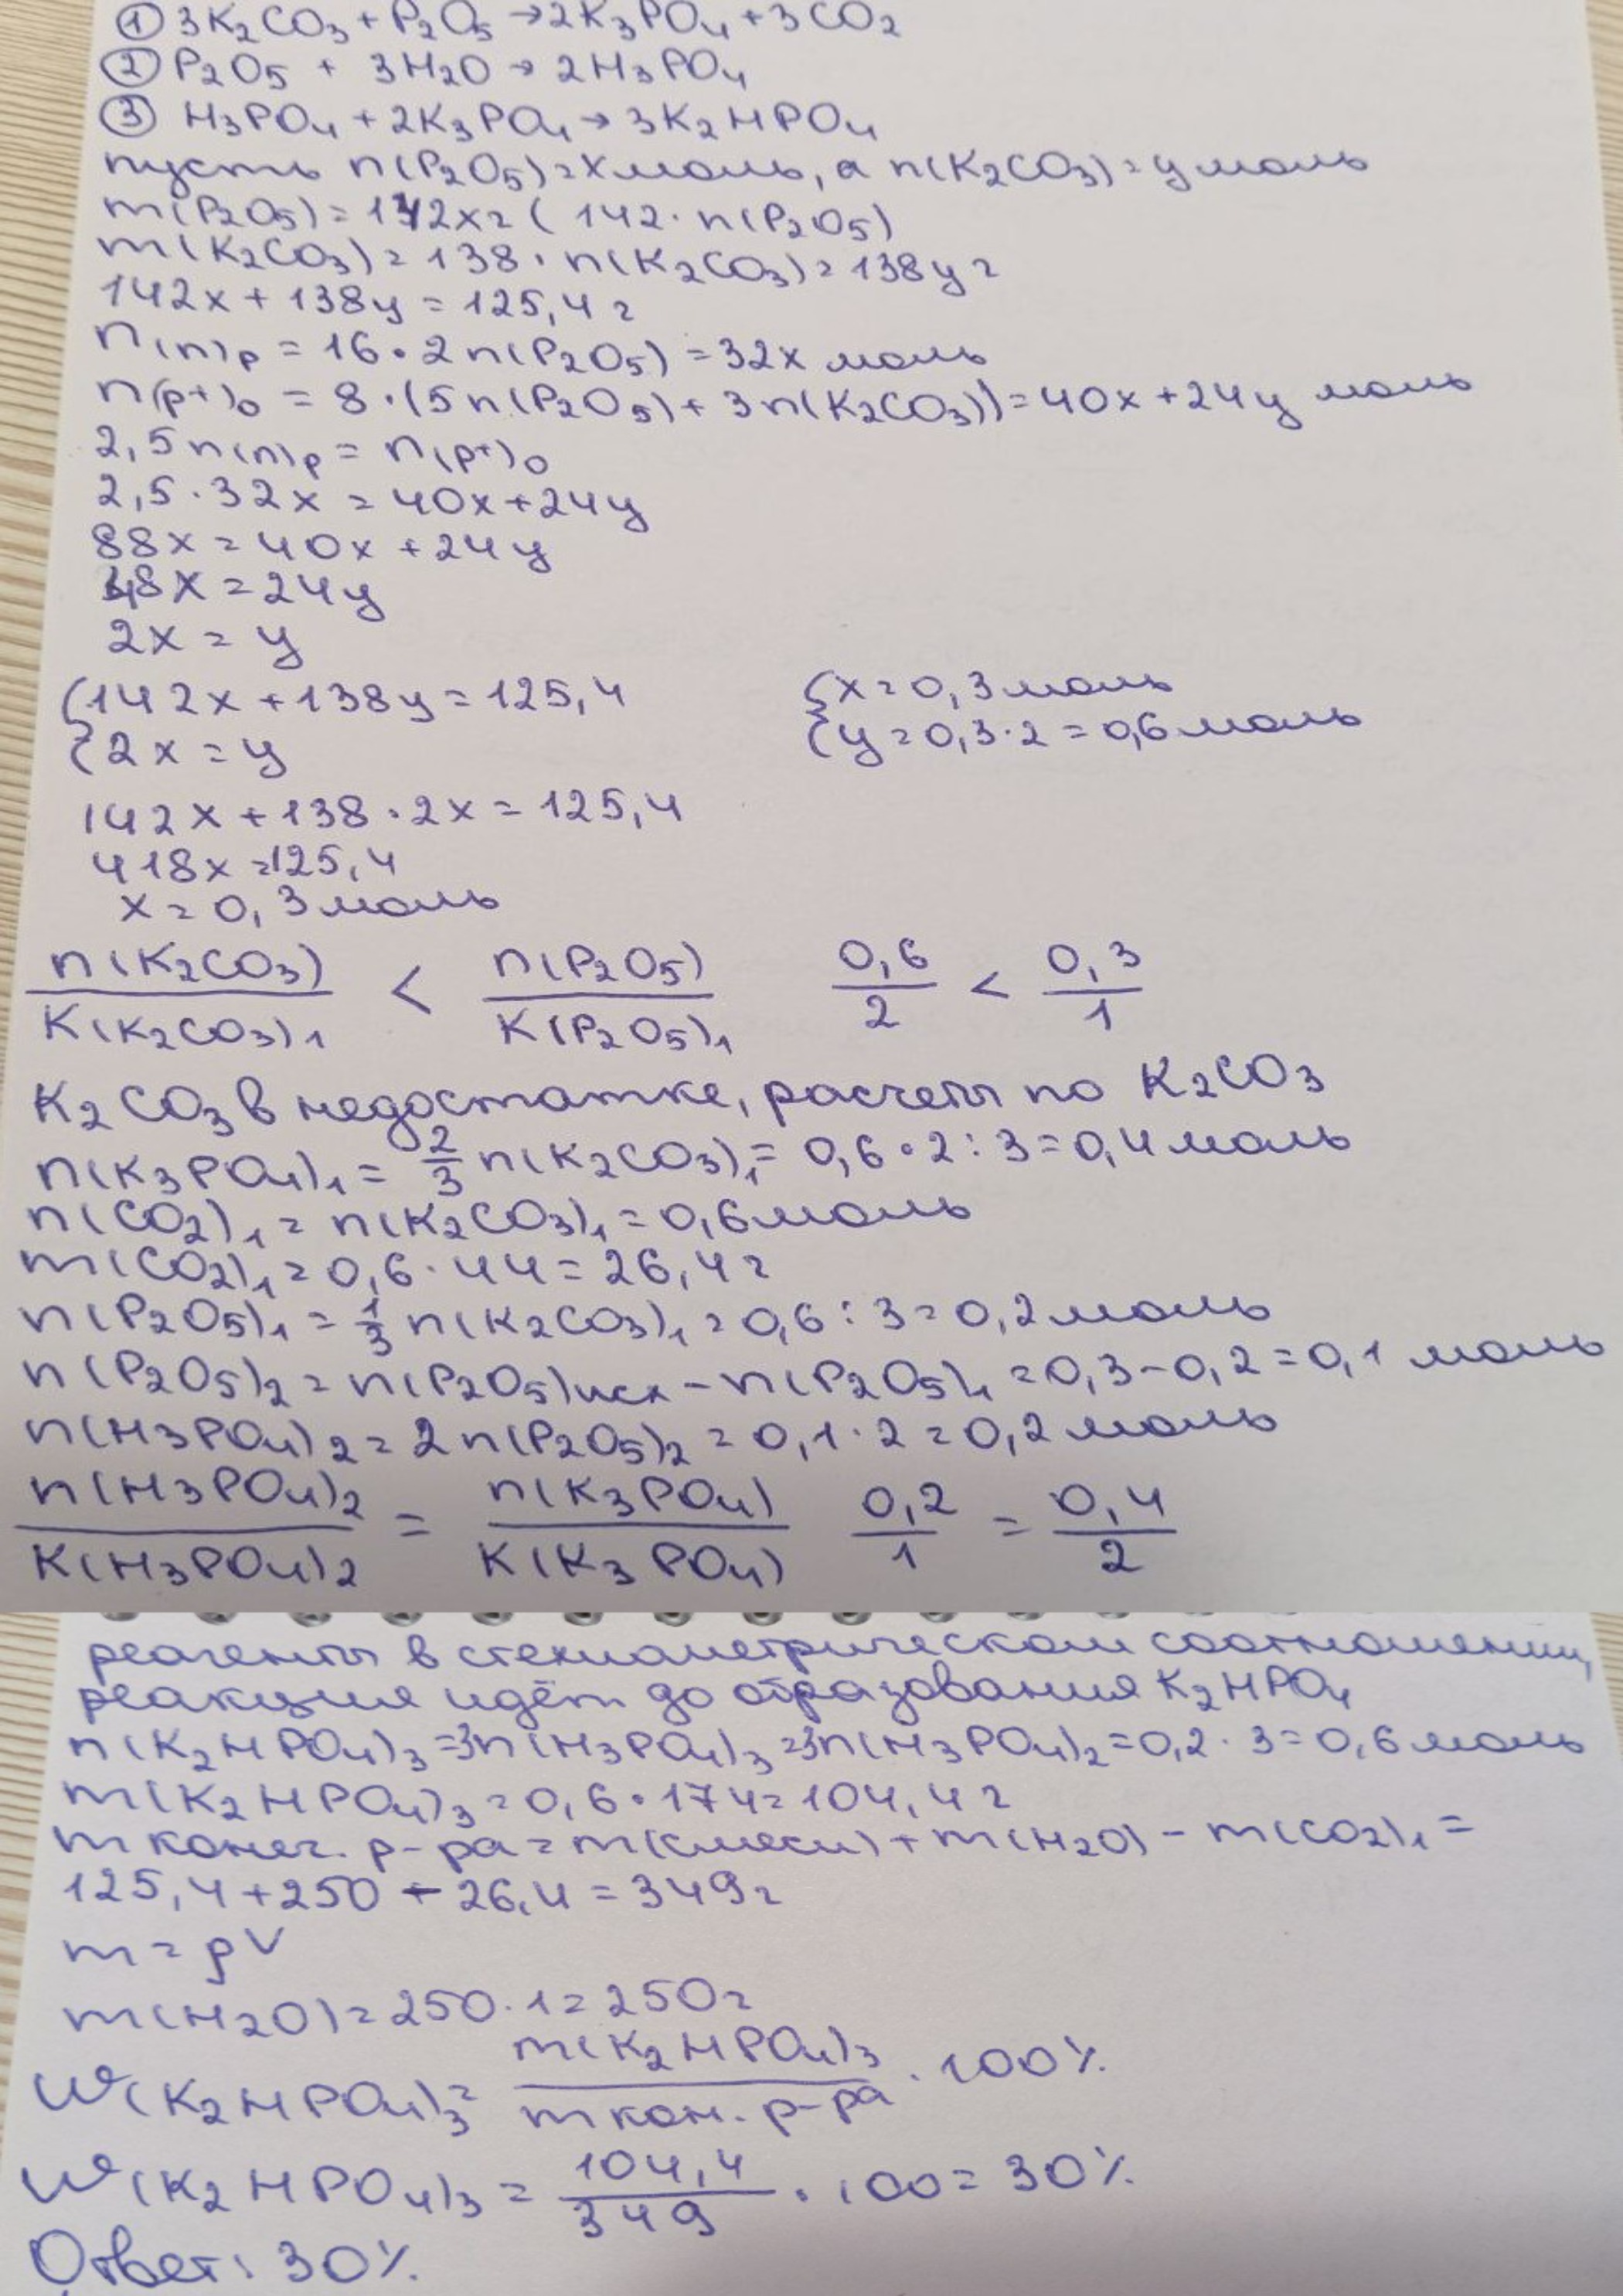 ① 3K₂CO₃ + P₂O₅ → 2K₃PO₄ + 3CO₂
② P₂O₅ + 3H₂O → 2H₃PO₄
③ H₃PO₄ + 2K₃PO₄ → 3K₂HPO₄
пусть n(P₂O₅) = x моль, а n(K₂CO₃) = y моль
m(P₂O₅) = 142x г (142 · n(P₂O₅)
m(K₂CO₃) = 138 · n(K₂CO₃) = 138y г
142x + 138y = 125,4 г
n(n)p = 16 · 2n(P₂O₅) = 32x моль
n(p+)o = 8 · (5n(P₂O₅) + 3n(K₂CO₃)) = 40x + 24y моль
2,5n(n)p = n(p+)o
2,5 · 32x = 40x + 24y
88x = 40x + 24y
48x = 24y
2x = y
{142x + 138y = 125,4 {x = 0,3 моль
{2x = y {y = 0,3 · 2 = 0,6 моль
142x + 138 · 2x = 125,4
418x = 125,4
x = 0,3 моль
n(K₂CO₃)/K(K₂CO₃)₁ < n(P₂O₅)/K(P₂O₅)₁ 0,6/2 < 0,3/1
K₂CO₃ в недостатке, расчеты по K₂CO₃
n(K₃PO₄)₁ = 2/3 n(K₂CO₃)₁ = 0,6 · 2 : 3 = 0,4 моль
n(CO₂)₁ = n(K₂CO₃)₁ = 0,6 моль
m(CO₂)₁ = 0,6 · 44 = 26,4 г
n(P₂O₅)₁ = 1/3 n(K₂CO₃)₁ = 0,6 : 3 = 0,2 моль
n(P₂O₅)₂ = n(P₂O₅)исх – n(P₂O₅)₁ = 0,3 – 0,2 = 0,1 моль
n(H₃PO₄)₂ = 2n(P₂O₅)₂ = 0,1 · 2 = 0,2 моль
n(H₃PO₄)₂/K(H₃PO₄)₂ = n(K₃PO₄)/K(K₃PO₄) 0,2/1 = 0,4/2
реагенты в стехиометрическом соотношении,
реакция идёт до образования K₂HPO₄
n(K₂HPO₄)₃ = 3n(H₃PO₄)₃ = 3n(H₃PO₄)₂ = 0,2 · 3 = 0,6 моль
m(K₂HPO₄)₃ = 0,6 · 174 = 104,4 г
m конеч. р-ра = m(смеси) + m(H₂O) – m(CO₂)₁ =
125,4 + 250 – 26,4 = 349 г
m = ρV
m(H₂O) = 250 · 1 = 250 г
W(K₂HPO₄)₃ = m(K₂HPO₄)₃/m кон. р-ра · 100%
W(K₂HPO₄)₃ = 104,4/349 · 100 = 30%
Ответ: 30%